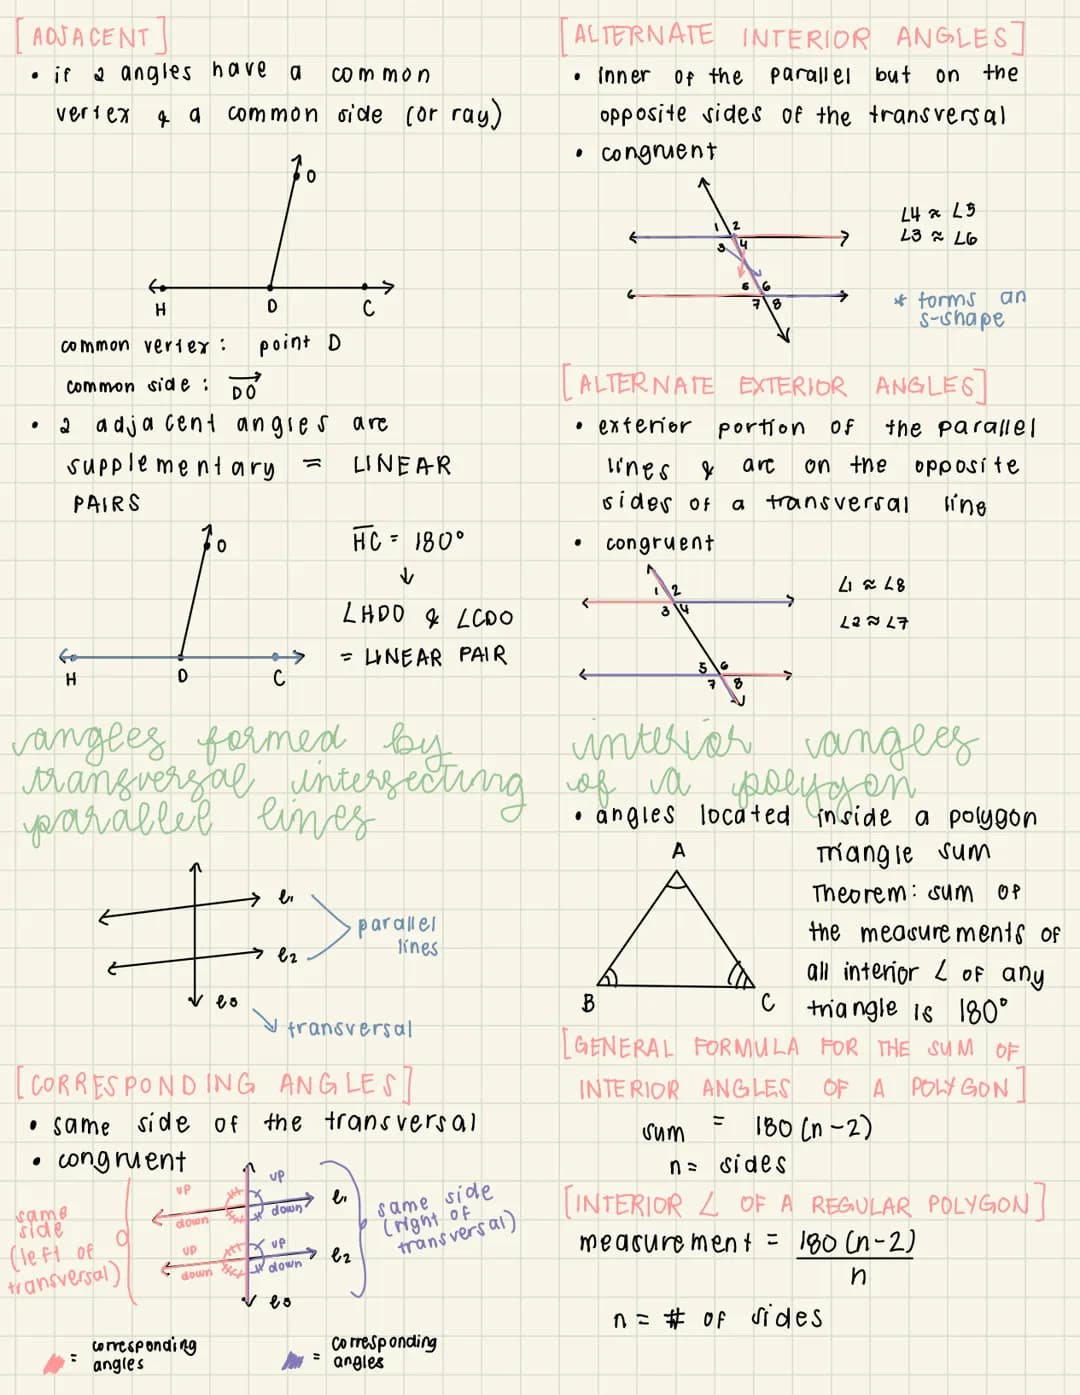 [ADJACENT]
• if 2 angles have a common
vertex & a common side (or ray)
O
H
D
C
common vertex: point D
common side: DO
• 2 adjacent angles are
supplementary = LINEAR
PAIRS
O
H
D
C
HC = 180°
↓
∠HDO & ∠CDO
= LINEAR PAIR
angles formed by
transversal intersecting
parallel lines
l1
l2
l3
parallel
lines
transversal
[CORRESPONDING ANGLES]
• same side of the transversal
• congruent
same
side
(left of
transversal)
up
up
down
down
l1
up
up
down
down
l2
l3
same side
(right of
transversal)
= corresponding
angles
= corresponding
angles
[ALTERNATE INTERIOR ANGLES]
• inner of the parallel but on the
opposite sides of the transversal
• congruent
1 2
3 4
5 6
7 8
∠4 ≈ ∠5
∠3 ≈ ∠6
* forms an
s-shape
[ALTERNATE EXTERIOR ANGLES]
• exterior portion of the parallel
lines & are on the opposite
sides of a transversal line
• congruent
1 2
3 4
5 6
7 8
∠1 ≈ ∠8
∠2 ≈ ∠7
interior angles
of a polygon
• angles located inside a polygon
A
B
C
Triangle sum
Theorem: sum of
the measurements of
all interior ∠ of any
triangle is 180°
[GENERAL FORMULA FOR THE SUM OF
INTERIOR ANGLES OF A POLYGON]
sum = 180 (n-2)
n = sides
[INTERIOR ∠ OF A REGULAR POLYGON]
measurement = 180 (n-2)
n
n = # of sides